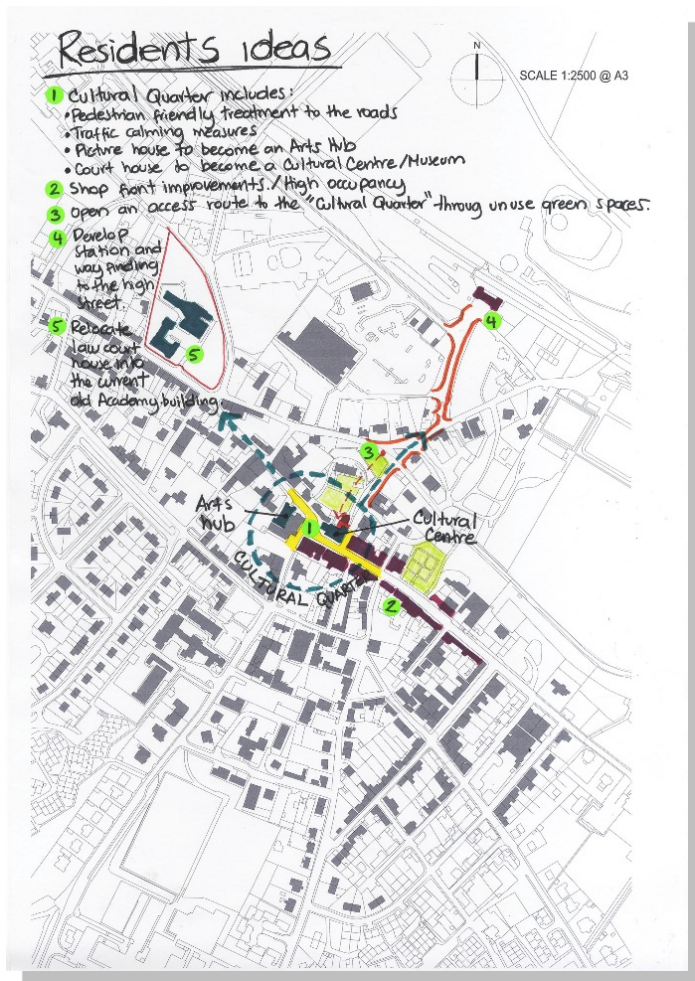 Residents ideas
N
SCALE 1:2500 @ A3
1 Cultural Quarter includes:
• Pedestrian friendly treatment to the roads
• Traffic calming measures
• Picture house to become an Arts Hub
• Court house to become a Cultural Centre/Museum
2 Shop front improvements./High occupancy
3 Open an access route to the "Cultural Quarter" throug unuse green spaces.
4 Develop
station and
way finding
to the high
street.
5 Relocate
law court
house into
the current
old Academy building
4
5
3
Arts
hub
1
Cultural
Centre
CULTURAL QUARTER
2